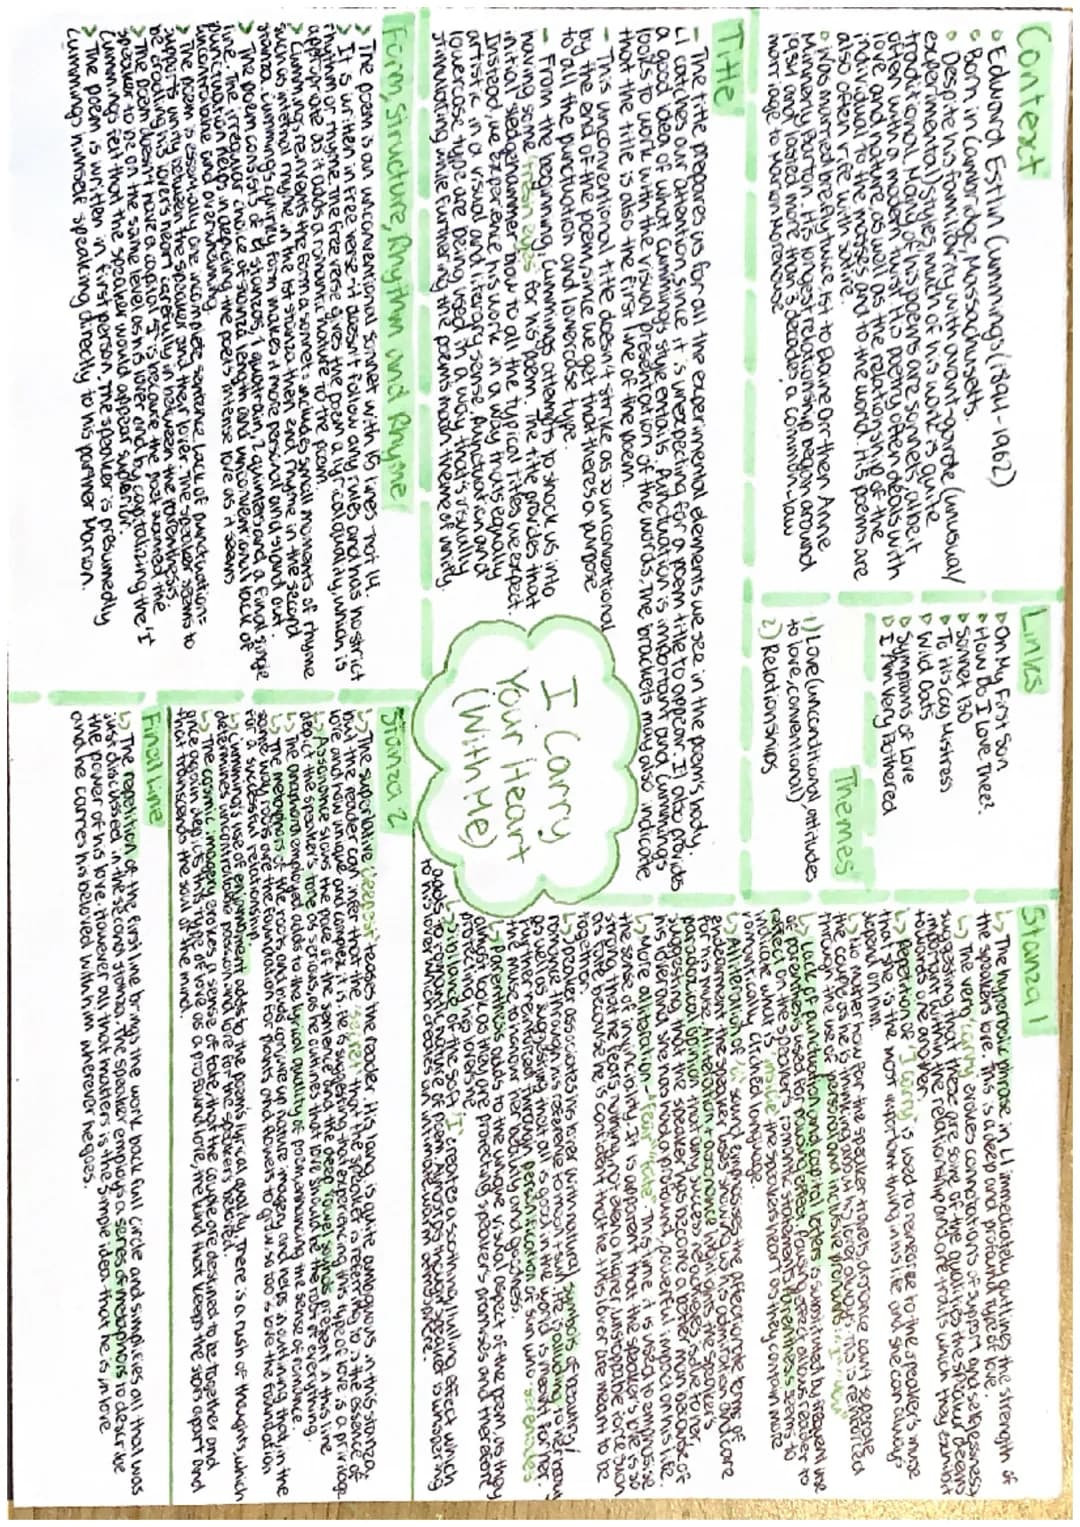 Context
Edward Estlin Cummings (1894-1962)
Born in Cambridge, Massachusetts.
Despite his familiarity with avant-garde (unusual/
experimental) styles, much of his work is quite
traditional. Many of his poems are sonnets, albeit
often with a modern twist. His poetry often deals with
love and nature, as well as the relationship of the
individual to the masses and to the world. His poems are
also often rife with satire.
Was married briefly twice, 1st to Elaine Orr then Anne
Minnerly Barton. His longest relationship began around
1934 and lasted more than 3 decades, a common-law
marriage to Marion Morehouse
Links
On My First Son
How Do I Love Thee?
Sonnet 130
To His Coy Mistress
Wild Oats
Symptoms of Love
I Am Very Bothered
Themes
1) Love (unconditional, attitudes
to love, conventional)
2) Relationships
Title
- The title prepares us for all the experimental elements we see in the poem's body.
L1 catches our attention since it is unexpecting for a poem title to appear. It also provides
a good idea of what Cummings' style entails. Punctuation is important and Cummings
looks to work with the visual presentation of the words. The brackets may also indicate
that the title is also the first line of the poem.
- This unconventional title doesn't strike as so unconventional
by the end of the poem, since we get that there's a purpose
to all the punctuation and lowercase type.
- From the beginning, Cummings attempts to shock us into
having some "fresh eyes" for his poem. The title provides that
initial sledgehammer blow to all the typical titles we expect.
Instead, we experience his work in a way that's equally
artistic in a visual and literary sense. Punctuation and
lowercase type are being used in a way that's visually
stimulating while furthering the poem's main theme of unity.
I Carry
Your Heart
(With Me)
Form, Structure, Rhythm and Rhyme
The poem is an unconventional sonnet with 15 lines, not 14.
It is written in free verse - it doesn't follow any rules and has no strict
rhythm or rhyme. The free verse gives the poem a lyrical quality, which is
appropriate as it adds a romantic nature to the poem.
Cummings reinvents the form a sonnet - includes small moments of rhyme
such as internal rhyme in the 1st stanza then end rhyme in the second
stanza. Cummings' quirky form makes it more personal and stand out.
The poem consists of 4 stanzas, 1 quatrain, 2 quintets and a final single
line. The irregular choice of stanza length and unconventional lack of
punctuation helps in depicting the poet's intense love as it seems
uncontainable and overwhelming.
The poem is essentially one incomplete sentence. Lack of punctuation =
supports unity between the speaker and their lover. The speaker seems to
be cradling his lover's heart carefully in between the parenthesis.
The poem doesn't have a capital 'I' because the poet wanted the
speaker to be on the same level as his lover and by capitalizing the 'I'
Cummings felt that the speaker would appear superior.
The poem is written in first person. The speaker is presumedly
Cummings himself speaking directly to his partner Marion.
Stanza 1
The hyperbolic phrase in L1 immediately outlines the strength of
the speaker's love. This is a deep and profound type of love.
The verb 'carry' evokes connotations of support and selflessness
suggesting that these are some of the qualities the speaker deems
important within the relationship and are traits which they exhibit
towards one another.
Repetition of "I carry" is used to reinforce to the speaker's muse
that she is the most important thing in his life and she can always
depend on him.
No matter how far the speaker travels, distance can't separate
the couple as he is thinking about his lover always. This is reinforced
through the use of personal and inclusive pronouns
Lack of punctuation and capital letters is substituted by frequent use
of parenthesis used for pause effect. Pausing effect allows reader to
reflect on the speaker's romantic statements. Parentheses seems to
indicate what is "inside" the speaker's heart as they contain more
romantically charged language.
Alliteration of sound emphasises the affectionate terms of
endearment the speaker uses, showing us his admiration and care
for his muse. Alliteration + assonance
paradoxical opinion that any success he achieves is due to her,
suggesting that the speaker has become a better man because of
his lover and she has had a profound, powerful impact on his life.
More alliteration - "fear" "fate". This time it is used to emphasise
the sense of invincibility. It is apparent that the speaker's love is so
strong that he fears nothing, not even a higher, unstoppable force such
as fate because he is confident that he and his lover are meant to be
together.
Speaker associates his lover with natural symbols of beauty/
romance through his reference to moon + sun.
as well as suggesting that all is good in the world is meant for her.
further reinforced through personification of sun who serenades
the muse to honour her beauty and goodness.
Parenthesis adds to the unique visual aspect of the poem, as they
almost look as they are protecting speaker's promises and therefore
protecting his lover.
Sibilance of the soft creates a soothing/lulling effect which
adds to romantic nature of poem. Almost as though speaker is whispering
to his lover which creates an intimate atmosphere.
Stanza 2
The superlative 'deepest' teases the reader. His lang. is quite ambiguous in this stanza,
but the reader can infer that the 'secret' that the speaker is referring to is the essence of
love and how unique and complex it is. He is suggesting that experiencing this type of love is a privilege.
Assonance slows the pace of the sentence and the deep vowel sounds present in this line
depict the speaker's tone as serious, as he outlines that love should be the root of everything.
The anaphora employed adds to the lyrical quality of poem, enhancing the sense of romance.
The metaphors of the roots and buds conjure up nature imagery and helps in outlining that, in the
same way roots are the foundation for plants and flowers to grow, so too is love the foundation
for a successful relationship.
Cummings's use of enjambment adds to the poem's lyrical quality. There is a rush of thoughts, which
determines uncontrollable passion and love for the speaker's beloved.
The cosmic imagery evokes a sense of fate, that the couple are destined to be together and
once again depicts this type of love as a profound love, the kind that keeps the stars apart and
that transcends the soul or the mind.
Final Line
The repetition of the first line brings the work back full circle and simplifies all that was
just discussed in the second stanza. The speaker employs a series of metaphors to describe
the power of his love. However all that matters is the simple idea that he is in love
and he carries his beloved with him wherever he goes.